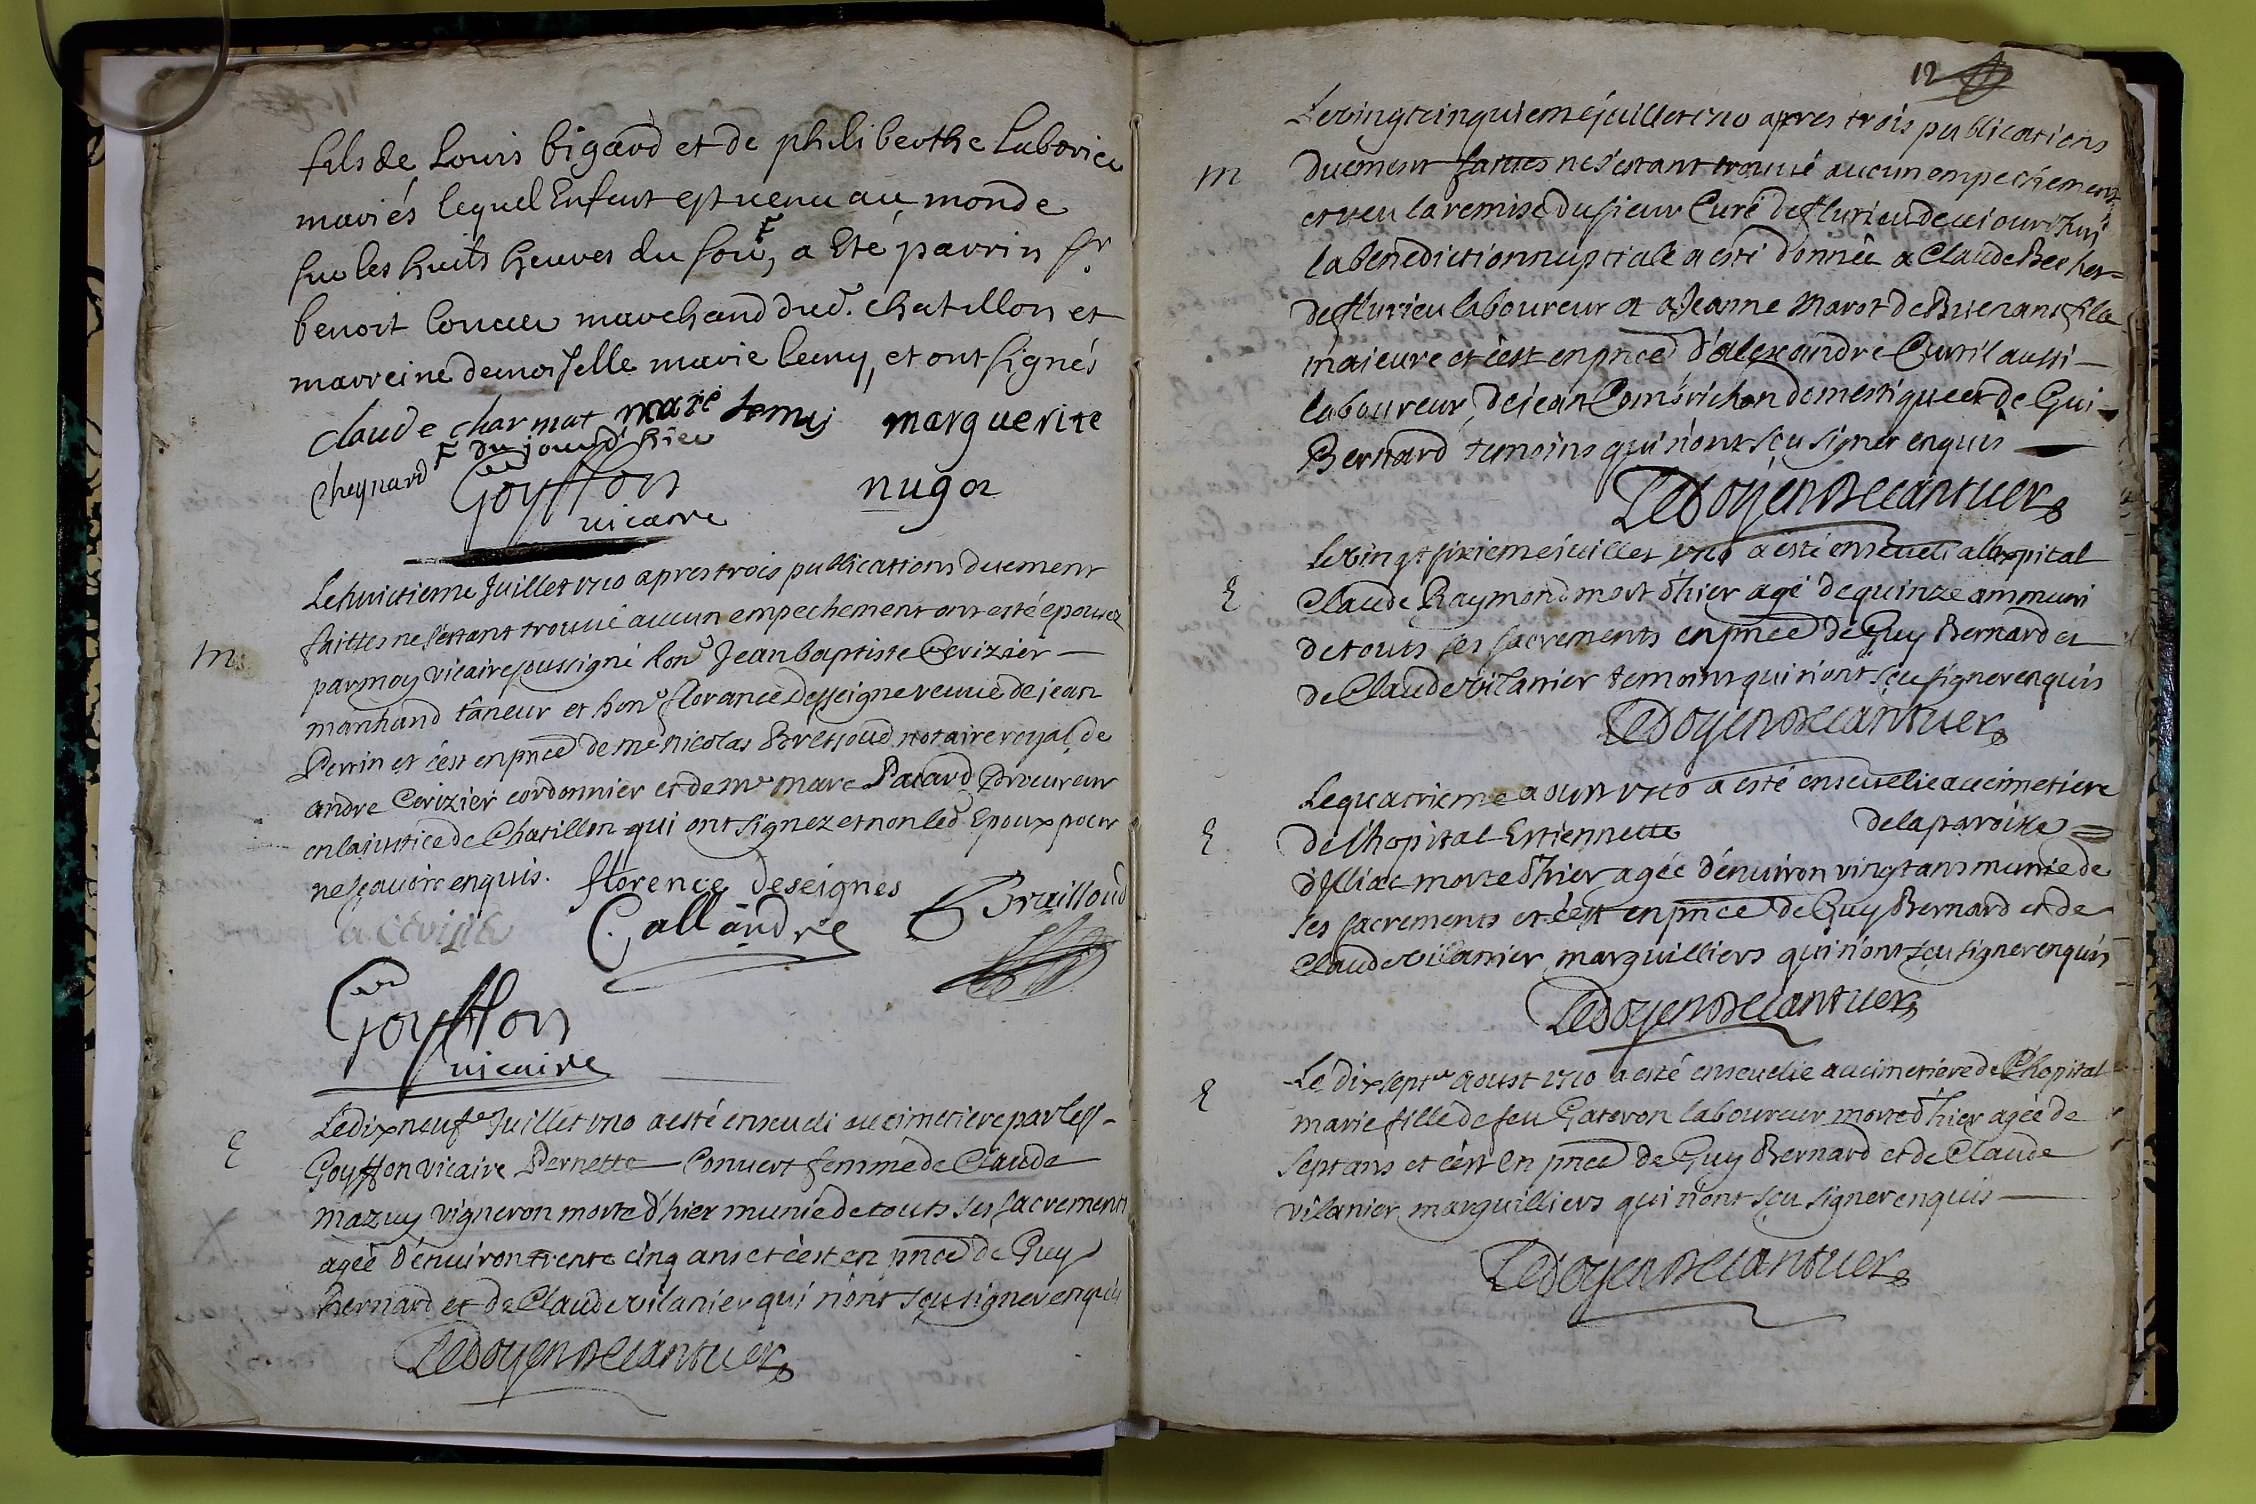 fils de Louis bigard et de philiberthe
mariés lequel Enfant est venu au monde
sur les huits heures du soir, a Eté parrin sr.
benoit marchand dud. chatillon et
marreine demoiselle marie lemy, et ont signés
claude charmat marie lemy marguerite
du jourd'hier
cheynard Goyffon nugoz
vicaire
Le huictieme Juillet 1710 apres trois publications duement
m faittes ne s'estant trouvé aucun empechement ont esté epousez
par moy vicaire soussigné hon. Jean baptiste Cerizier
marchand tâneur et hon. florance Desseigne veuve de jean
Perrin et c'est en pnce de me nicolas notaire royal, de
andre Cerizier cordonnier et de me marc Pacard Procureur
en la justice de Chatillon qui ont signez et non led. Epoux pour
ne sçavoir enquis. florence deseignes
Goyffon
vicaire
Le dix neufe Juillet 1710 a esté enseveli au cimetiere par less
E Goyffon vicaire Pernette Convert femme de Claude
mazuy vigneron morte d'hier munie de touts ses sacrements
agée d'environ trente cinq ans et c'est en pnce de Guy
Bernard et de Claude vilanier qui n'ont sçu signer enquis
Ledoyen De cantuer
12
Le vingt cinquieme juillet 1710 apres trois publications
m duement faittes ne s'estant trouvé aucun empechement
et veu la remise du sieur Curé de flurieu de ce jourd'huy
la benediction nuptiale a esté donnée a Claude
de flurieu laboureur et a Jeanne Marot de fille
majeure et c'est en pnce d'alexandre aussi
laboureur, de jean domestique et de Gui
Bernard temoins qui n'ont sçu signer enquis
Ledoyen De cantuer
Le vingt sixieme juillet 1710 a esté enseveli a l'hopital
E Claude Raymond mort d'hier agé de quinze ans muni
de touts ses sacrements en pnce de Guy Bernard et
de Claude vilanier temoins qui n'ont sçu signer enquis
Ledoyen De cantuer
Le quatrieme aoust 1710 a esté ensevelie au cimetiere
E de l'hopital Estiennette de la paroisse
d'Illiac morte d'hier agée d'environ vingt ans munie de
ses sacrements et c'est en pnce de Guy Bernard et de
Claude vilanier marguilliers qui n'ont sçu signer enquis
Ledoyen De cantuer
E Le dix septe aoust 1710 a esté ensevelie au cimetiere de l'hopital
marie fille de feu Gateron laboureur morte d'hier agée de
sept ans et c'est en pnce de Guy Bernard et de Claude
vilanier marguilliers qui n'ont sçu signer enquis
Ledoyen De cantuer